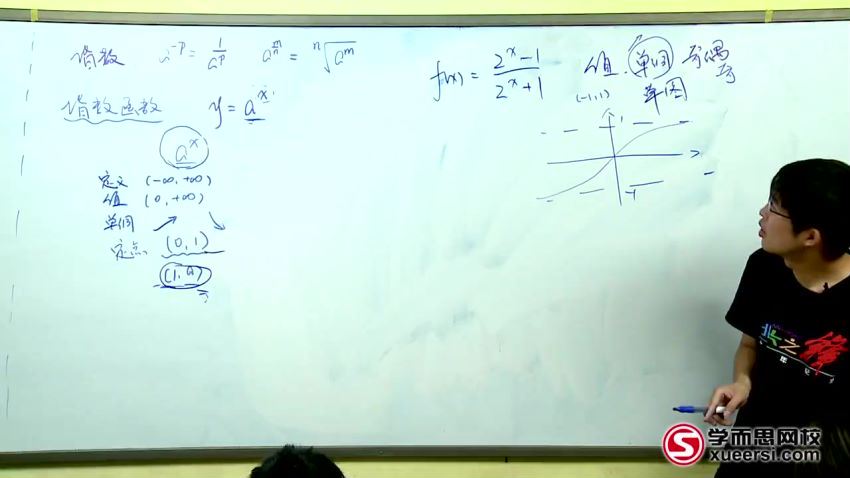 指数 a^{-p} = \frac{1}{a^p} a^{\frac{m}{n}} = \sqrt[n]{a^m}
指数函数 y = a^x
a^x
定义 (-∞, +∞)
值 (0, +∞)
单调
定点 (0, 1)
(1, a)
f(x) = \frac{2^x - 1}{2^x + 1}
值 单调 奇偶
(-1, 1) 奇
1
-1
学而思网校
xueersi.com